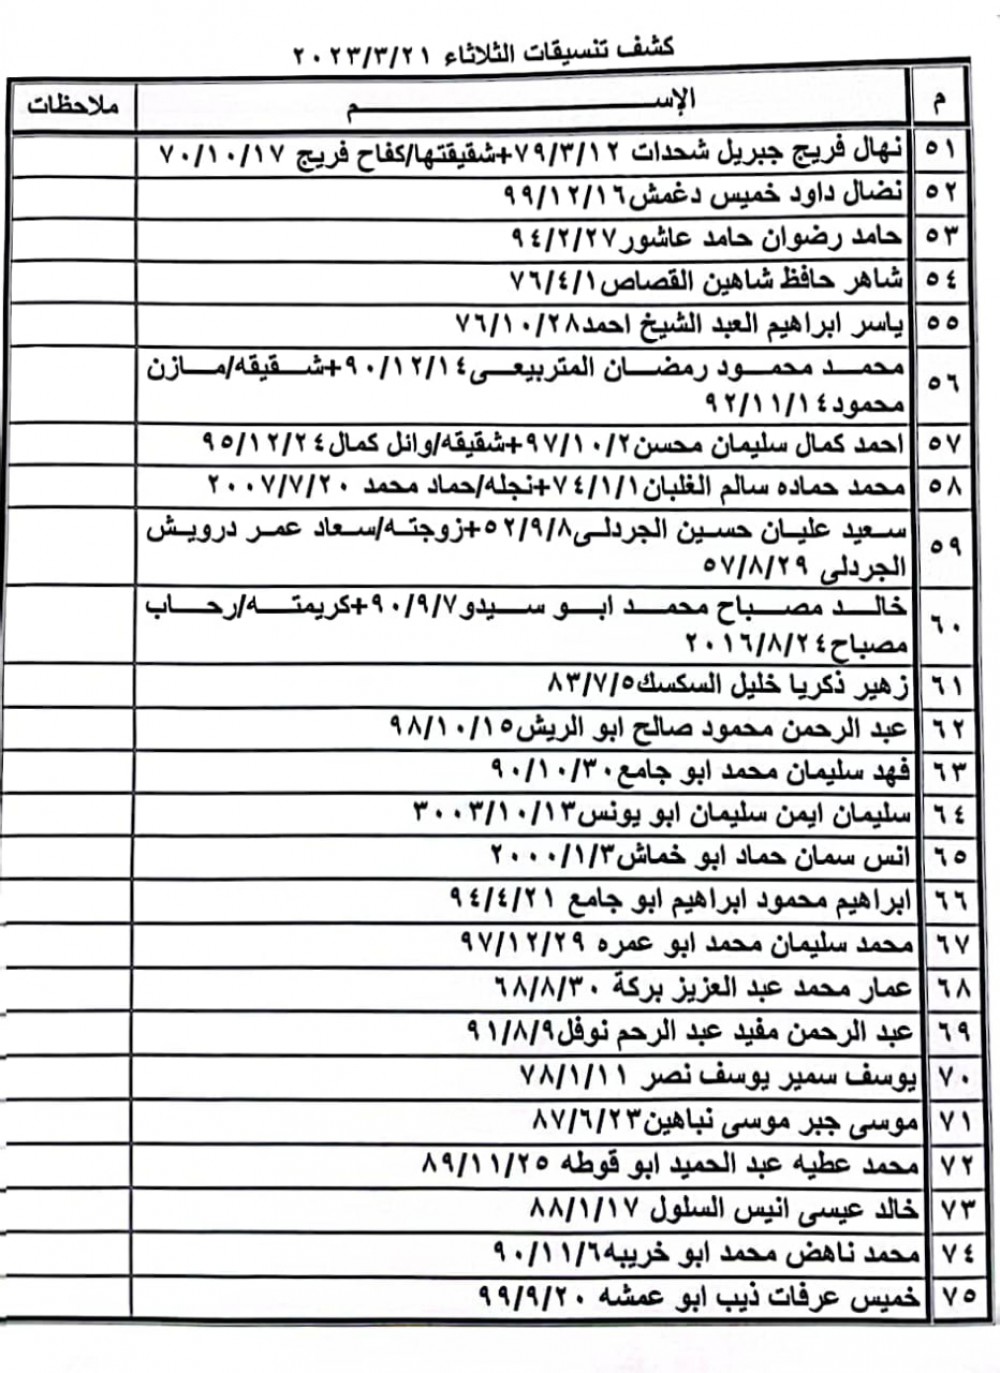 كشف تنسيقات الثلاثاء ٢٠٢٣/٣/٢١
م الإســـــــم ملاحظات
٥١ نهال فريج جبريل شحدات ٧٩/٣/١٢+شقيقتها/كفاح فريج ٧٠/١٠/١٧
٥٢ نضال داود خميس دغمش٩٩/١٢/١٦
٥٣ حامد رضوان حامد عاشور٩٤/٢/٢٧
٥٤ شاهر حافظ شاهين القصاص٧٦/٤/١
٥٥ ياسر ابراهيم العبد الشيخ احمد٧٦/١٠/٢٨
٥٦ محمد محمود رمضان المتربيعى٩٠/١٢/١٤+شقيقه/مازن
محمود٩٢/١١/١٤
٥٧ احمد كمال سليمان محسن٩٧/١٠/٢+شقيقه/وائل كمال٩٥/١٢/٢٤
٥٨ محمد حماده سالم الغلبان٧٤/١/١+نجله/حماد محمد ٢٠٠٧/٧/٢٠
٥٩ سعيد عليان حسين الجردلى٥٢/٩/٨+زوجته/سعاد عمر درويش
الجردلى ٥٧/٨/٢٩
٦٠ خالد مصباح محمد ابو سيدو٩٠/٩/٧+كريمته/رحاب
مصباح٢٠١٦/٨/٢٤
٦١ زهير ذكريا خليل السكسك٨٣/٧/٥
٦٢ عبد الرحمن محمود صالح ابو الريش٩٨/١٠/١٥
٦٣ فهد سليمان محمد ابو جامع٩٠/١٠/٣٠
٦٤ سليمان ايمن سليمان ابو يونس٣٠٠٣/١٠/١٣
٦٥ انس سمان حماد ابو خماش٢٠٠٠/١/٣
٦٦ ابراهيم محمود ابراهيم ابو جامع ٩٤/٤/٢١
٦٧ محمد سليمان محمد ابو عمره ٩٧/١٢/٢٩
٦٨ عمار محمد عبد العزيز بركة ٦٨/٨/٣٠
٦٩ عبد الرحمن مفيد عبد الرحم نوفل٩١/٨/٩
٧٠ يوسف سمير يوسف نصر ٧٨/١/١١
٧١ موسى جبر موسى نباهين٨٧/٦/٢٣
٧٢ محمد عطيه عبد الحميد ابو قوطه ٨٩/١١/٢٥
٧٣ خالد عيسى انيس السلول ٨٨/١/١٧
٧٤ محمد ناهض محمد ابو خريبه٩٠/١١/٦
٧٥ خميس عرفات ذيب ابو عمشه ٩٩/٩/٢٠